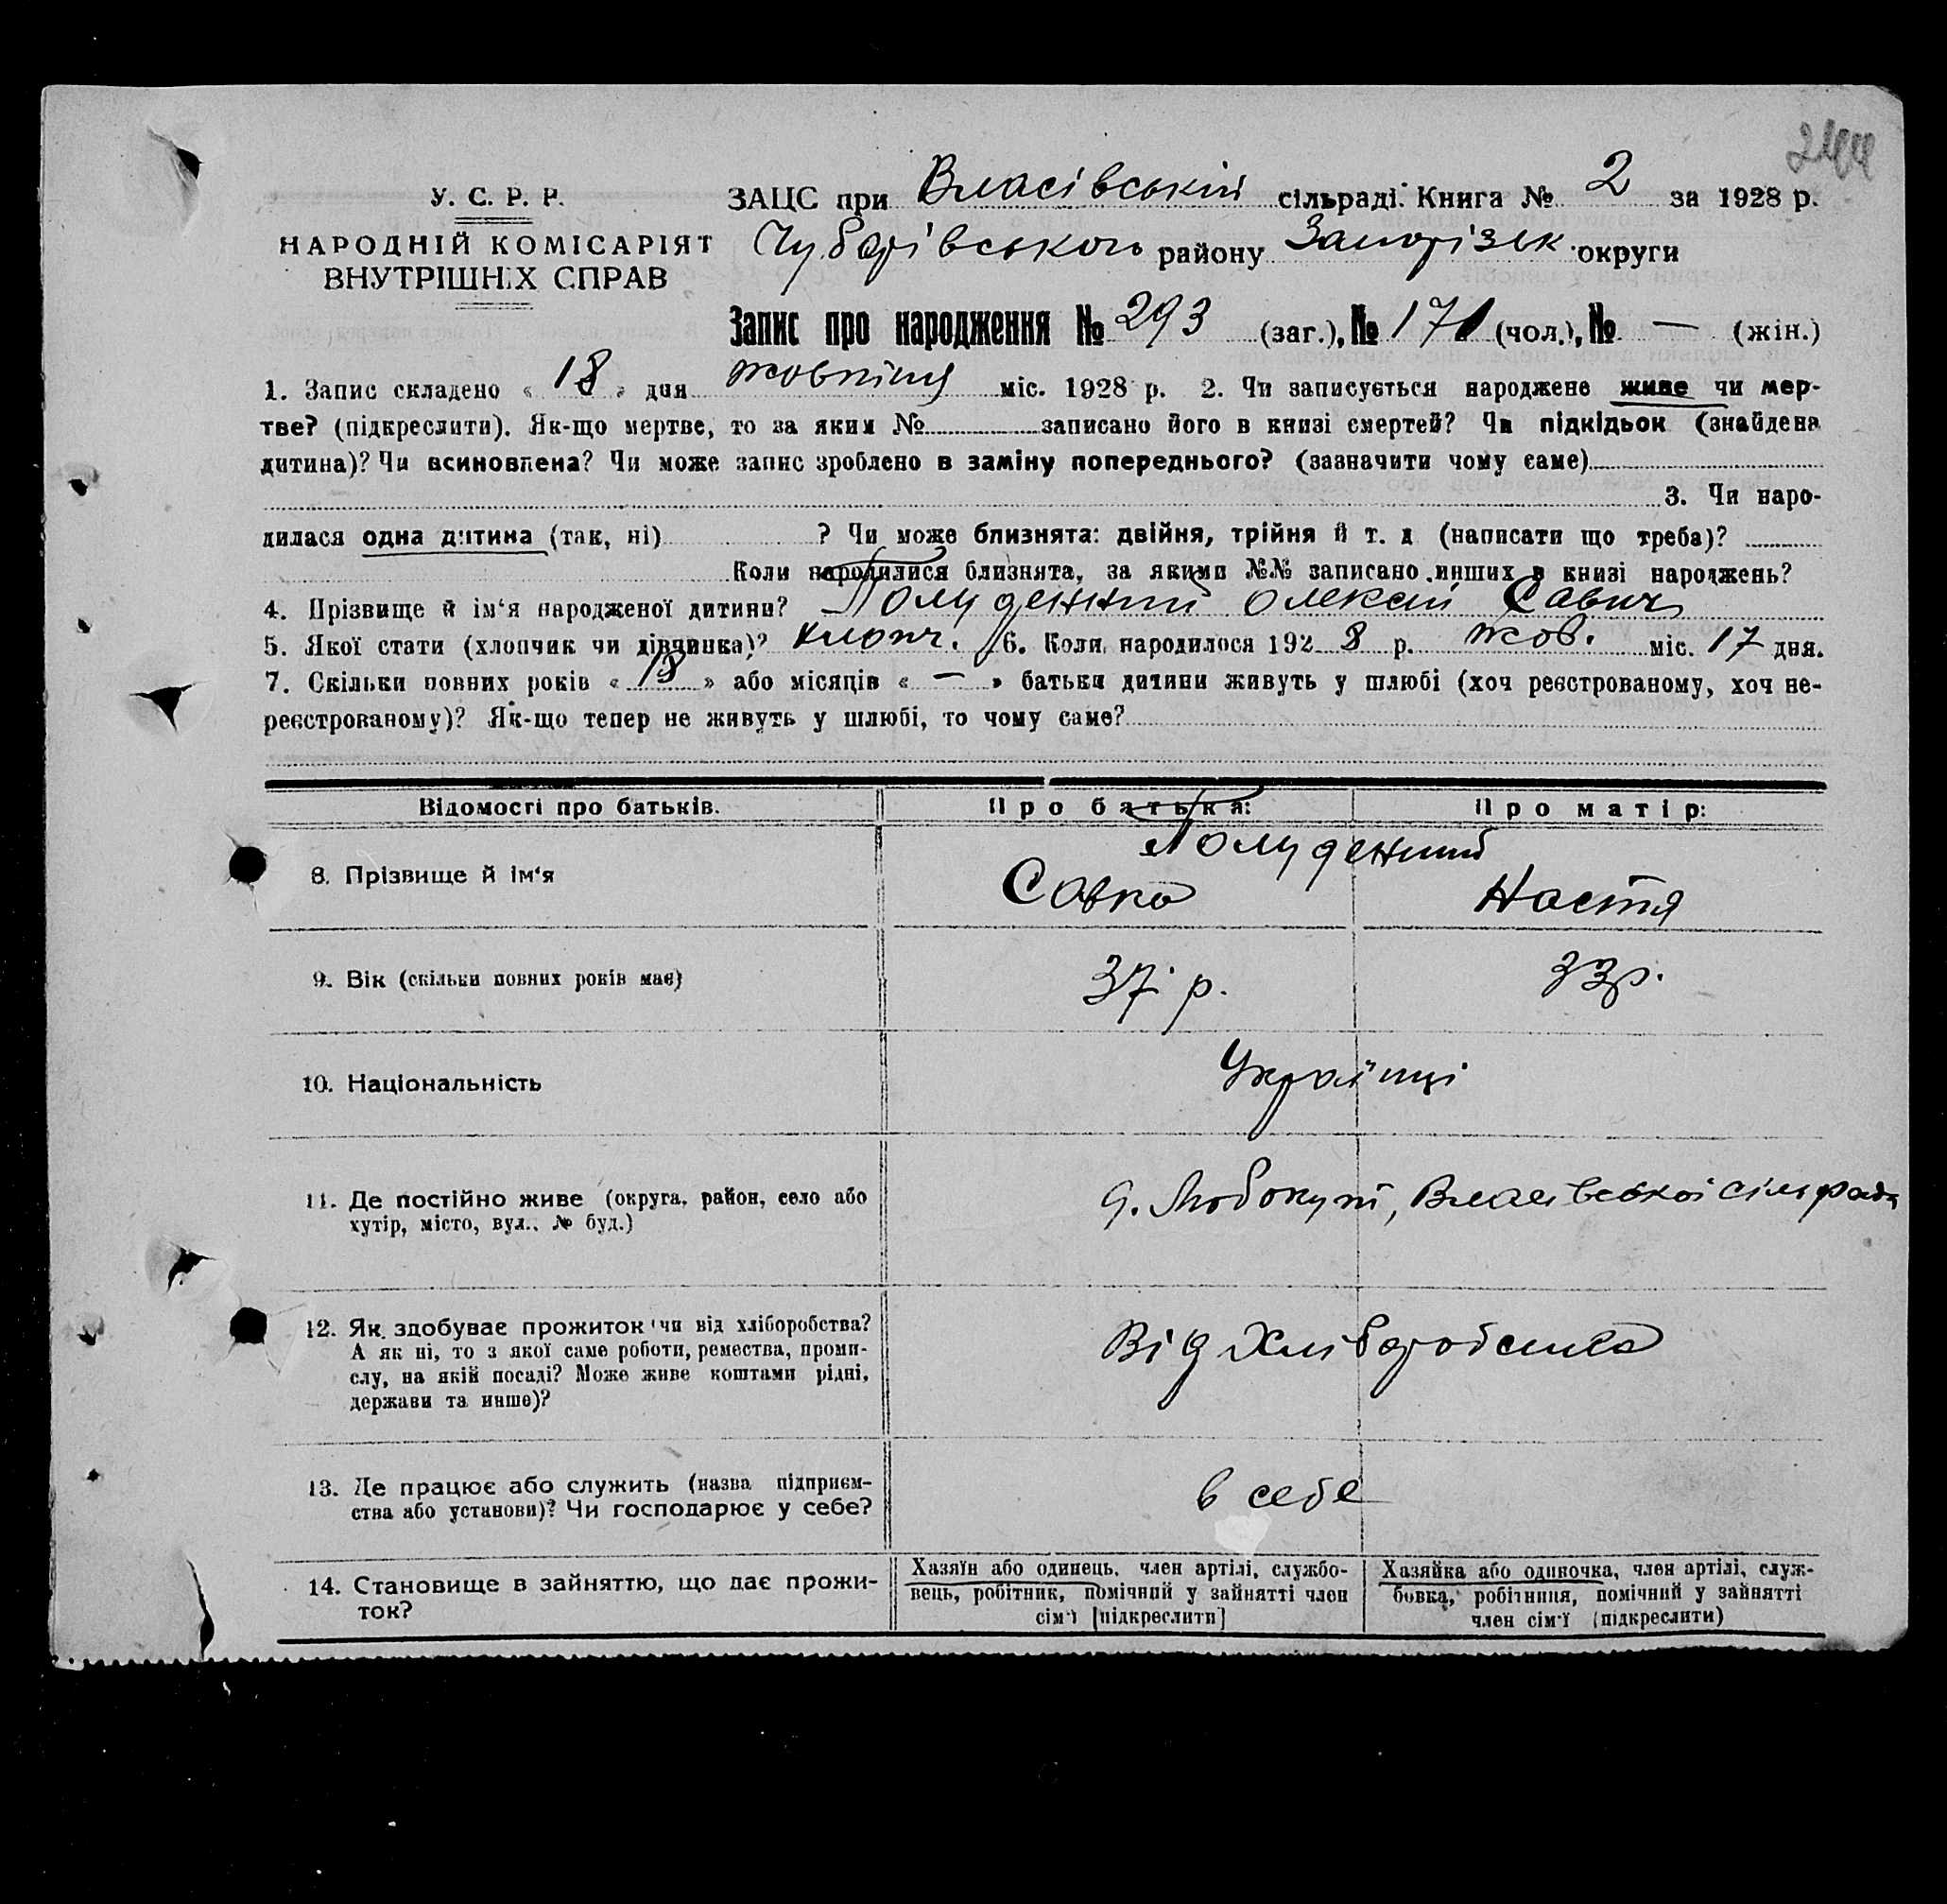 У. С. Р. Р.
НАРОДНІЙ КОМІСАРІЯТ
ВНУТРІШНІХ СПРАВ
ЗАЦС при Власівській сільраді. Книга № 2 за 1928 р.
Чубарівського району Запорізьк. округи
Запис про народження № 293 (заг.), № 171 (чол.), № — (жін.)
1. Запис складено « 18 » дня жовтня міс. 1928 р. 2. Чи записується народжене живе чи мер-
тве? (підкреслити). Як-що мертве, то за яким № записано його в книзі смертей? Чи підкідьок (знайдена
дитина)? Чи всиновлена? Чи може запис зроблено в заміну попереднього? (зазначити чому саме)
3. Чи наро-
дилася одна дитина (так, ні) ? Чи може близнята: двійня, трійня й т. д (написати що треба)?
Коли народилися близнята, за якими №№ записано инших в книзі народжень?
4. Прізвище й ім‘я народженої дитини? Полуденний Олексій Савич
5. Якої стати (хлопчик чи дівчинка)? хлопч. 6. Коли народилося 1928 р. жов. міс. 17 дня.
7. Скільки повних років « 18 » або місяців « — » батьки дитини живуть у шлюбі (хоч реєстрованому, хоч не-
реєстрованому)? Як-що тепер не живуть у шлюбі, то чому саме?
Відомості про батьків. Про батька: Про матір:
Полуденний
8. Прізвище й ім‘я Савка Настя
9. Вік (скільки повних років має) 37 р. 33 р.
10. Національність Українці
11. Де постійно живе (округа, район, село або
хутір, місто, вул., № буд.)
Власівської сільради
12. Як здобуває прожиток чи від хліборобства?
А як ні, то з якої саме роботи, ремества, проми-
слу, на якій посаді? Може живе коштами рідні,
держави та инше)?
Від Хліборобства
13. Де працює або служить (назва підприєм-
ства або установи)? Чи господарює у себе?
в себе
14. Становище в зайняттю, що дає прожи-
ток?
Хазяїн або одинець, член артілі, службо-
вець, робітник, помічний у зайнятті член
сім'ї [підкреслити]
Хазяйка або одиночка, член артілі, служ-
бовка, робітниця, помічний у зайнятті
член сім'ї (підкреслити)